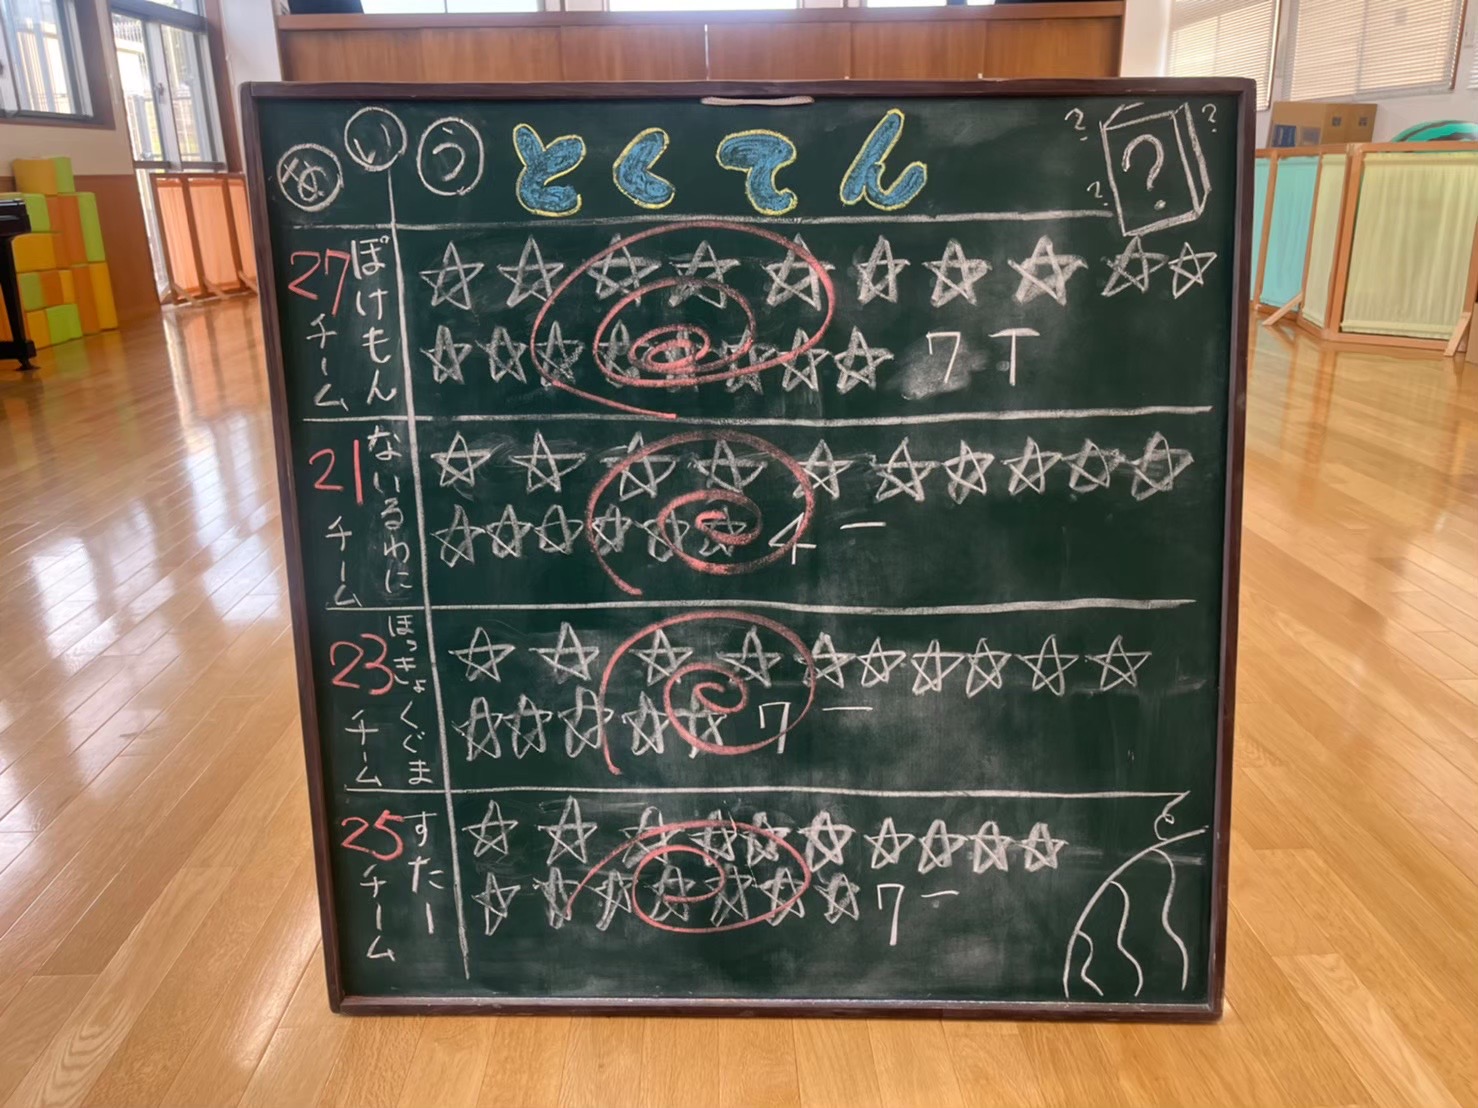 あ い う とくてん
?
?
?
?
27 ぽけもん
チーム
7 T
21 ないるわに
チーム
4 一
23 ほっきょくぐま
チーム
7 一
25 すたー
チーム
7 一